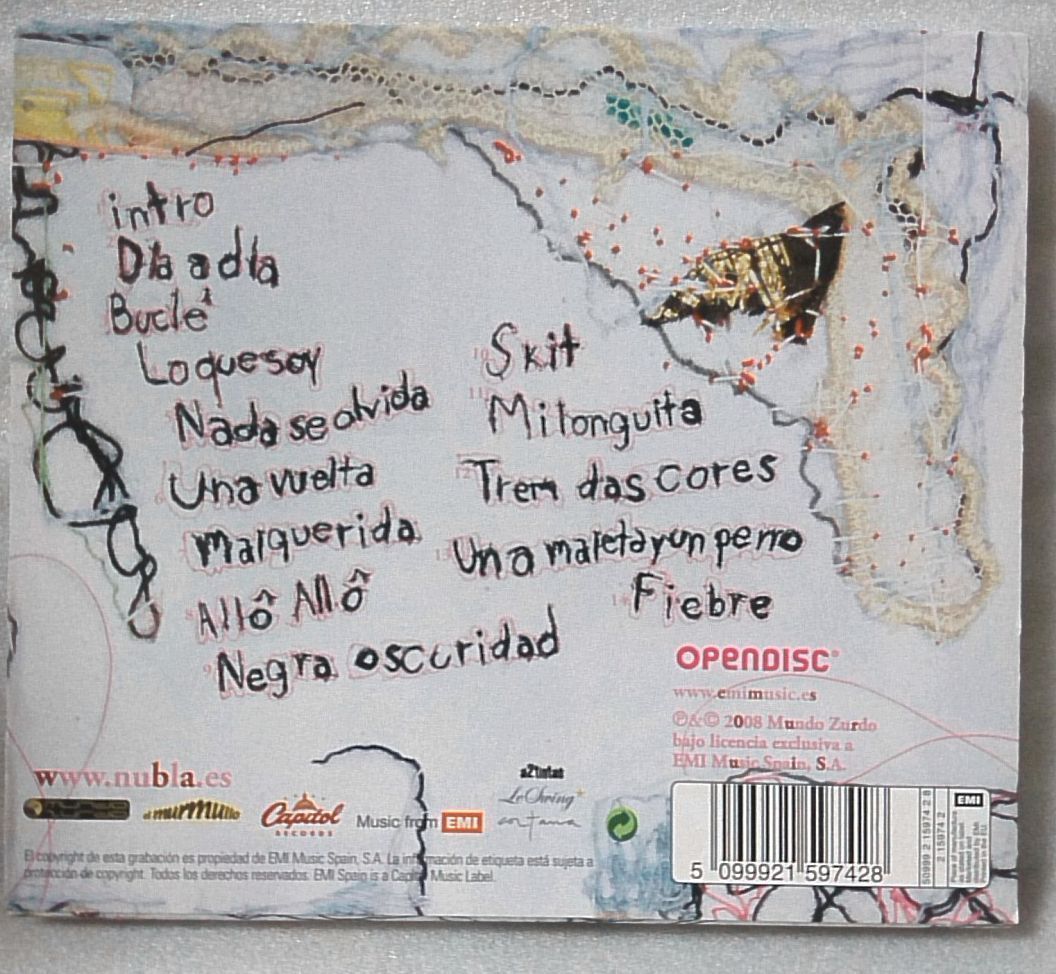 intro
Día a día
Buclé
Lo que soy
Nada se olvida
Una vuelta
Malquerida
Allô Allô
9 Negra oscuridad
10 Skit
11 Milonguita
12 Trem das cores
13 Una maleta y un perro
14 Fiebre
OPENDISC
www.emimusic.es
℗&© 2008 Mundo Zurdo
bajo licencia exclusiva a
EMI Music Spain, S.A.
www.nubla.es
el murmullo
Capitol
RECORDS
Music from EMI
a2tintas
Le Swing
El copyright de esta grabación es propiedad de EMI Music Spain, S.A. La información de etiqueta está sujeta a
protección de copyright. Todos los derechos reservados. EMI Spain is a Capitol Music Label.
5 099921 597428
50999 2 15974 2 8
2 15974 2
EMI